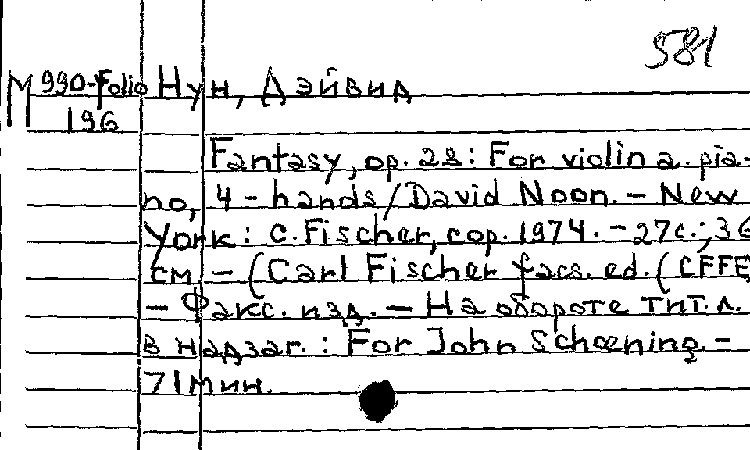 581
М 990-Folio Нун, Дэйвид
196
Fantasy, op. 28: For violin a. pia-
no, 4 - hands/David Noon. - New
York: C. Fischer, cop. 1974. - 27с.; 36
см. - (Carl Fischer facs. ed. (CFFE
- Факс. изд. - На обороте тит. л.
в надзаг.: For John Schœning -
71мин.